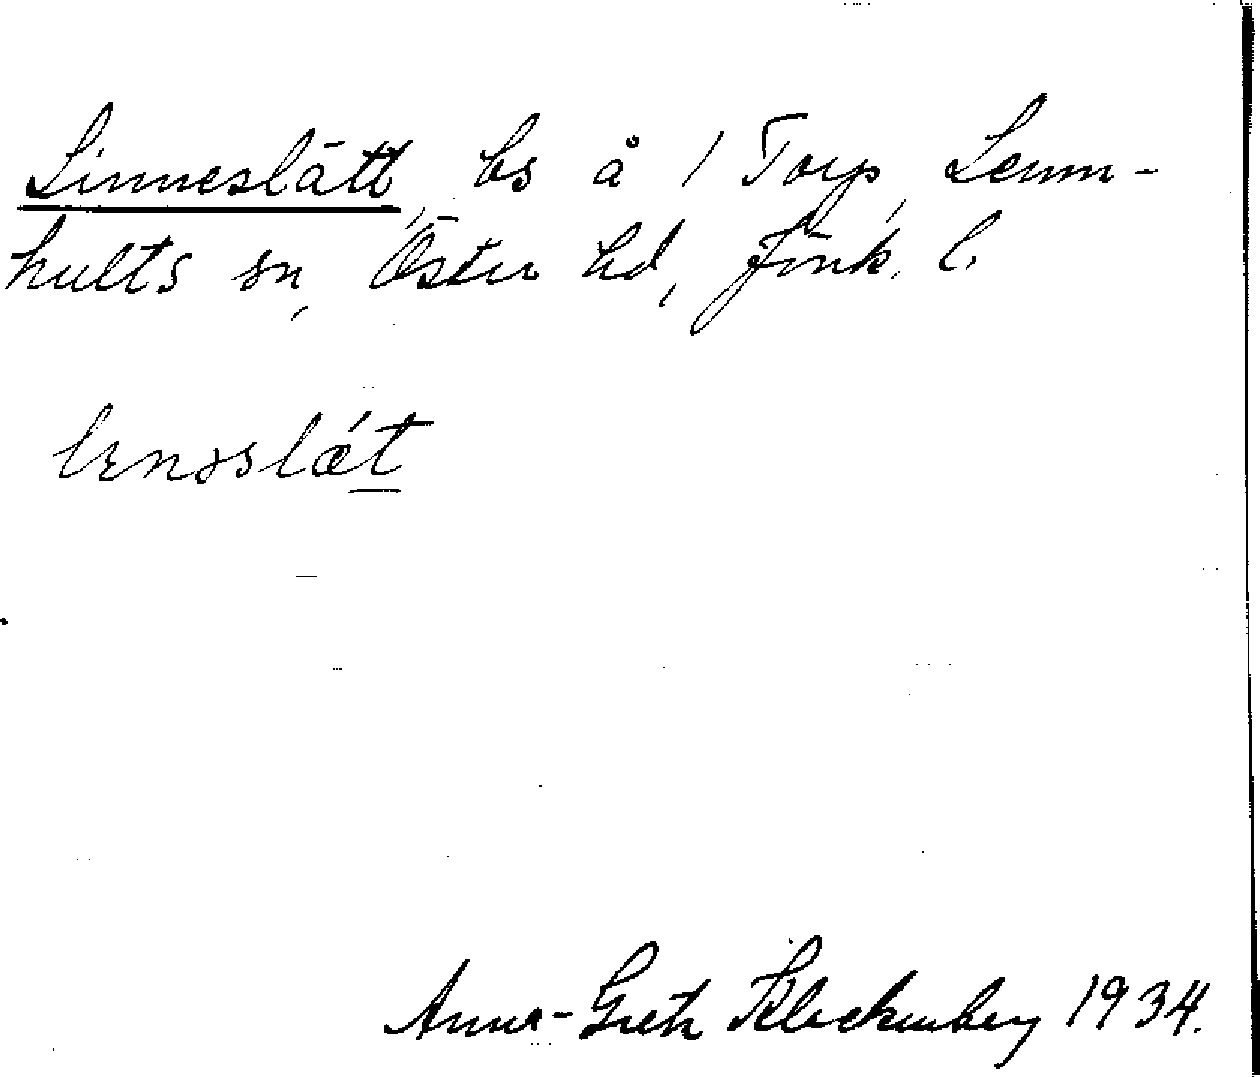 Linneslätt, bs å 1 Torp, Lemn-
hults sn, Öster hd, Jönk. l.
lenəslǽt
Anna-Greth Klockenberg 1934.